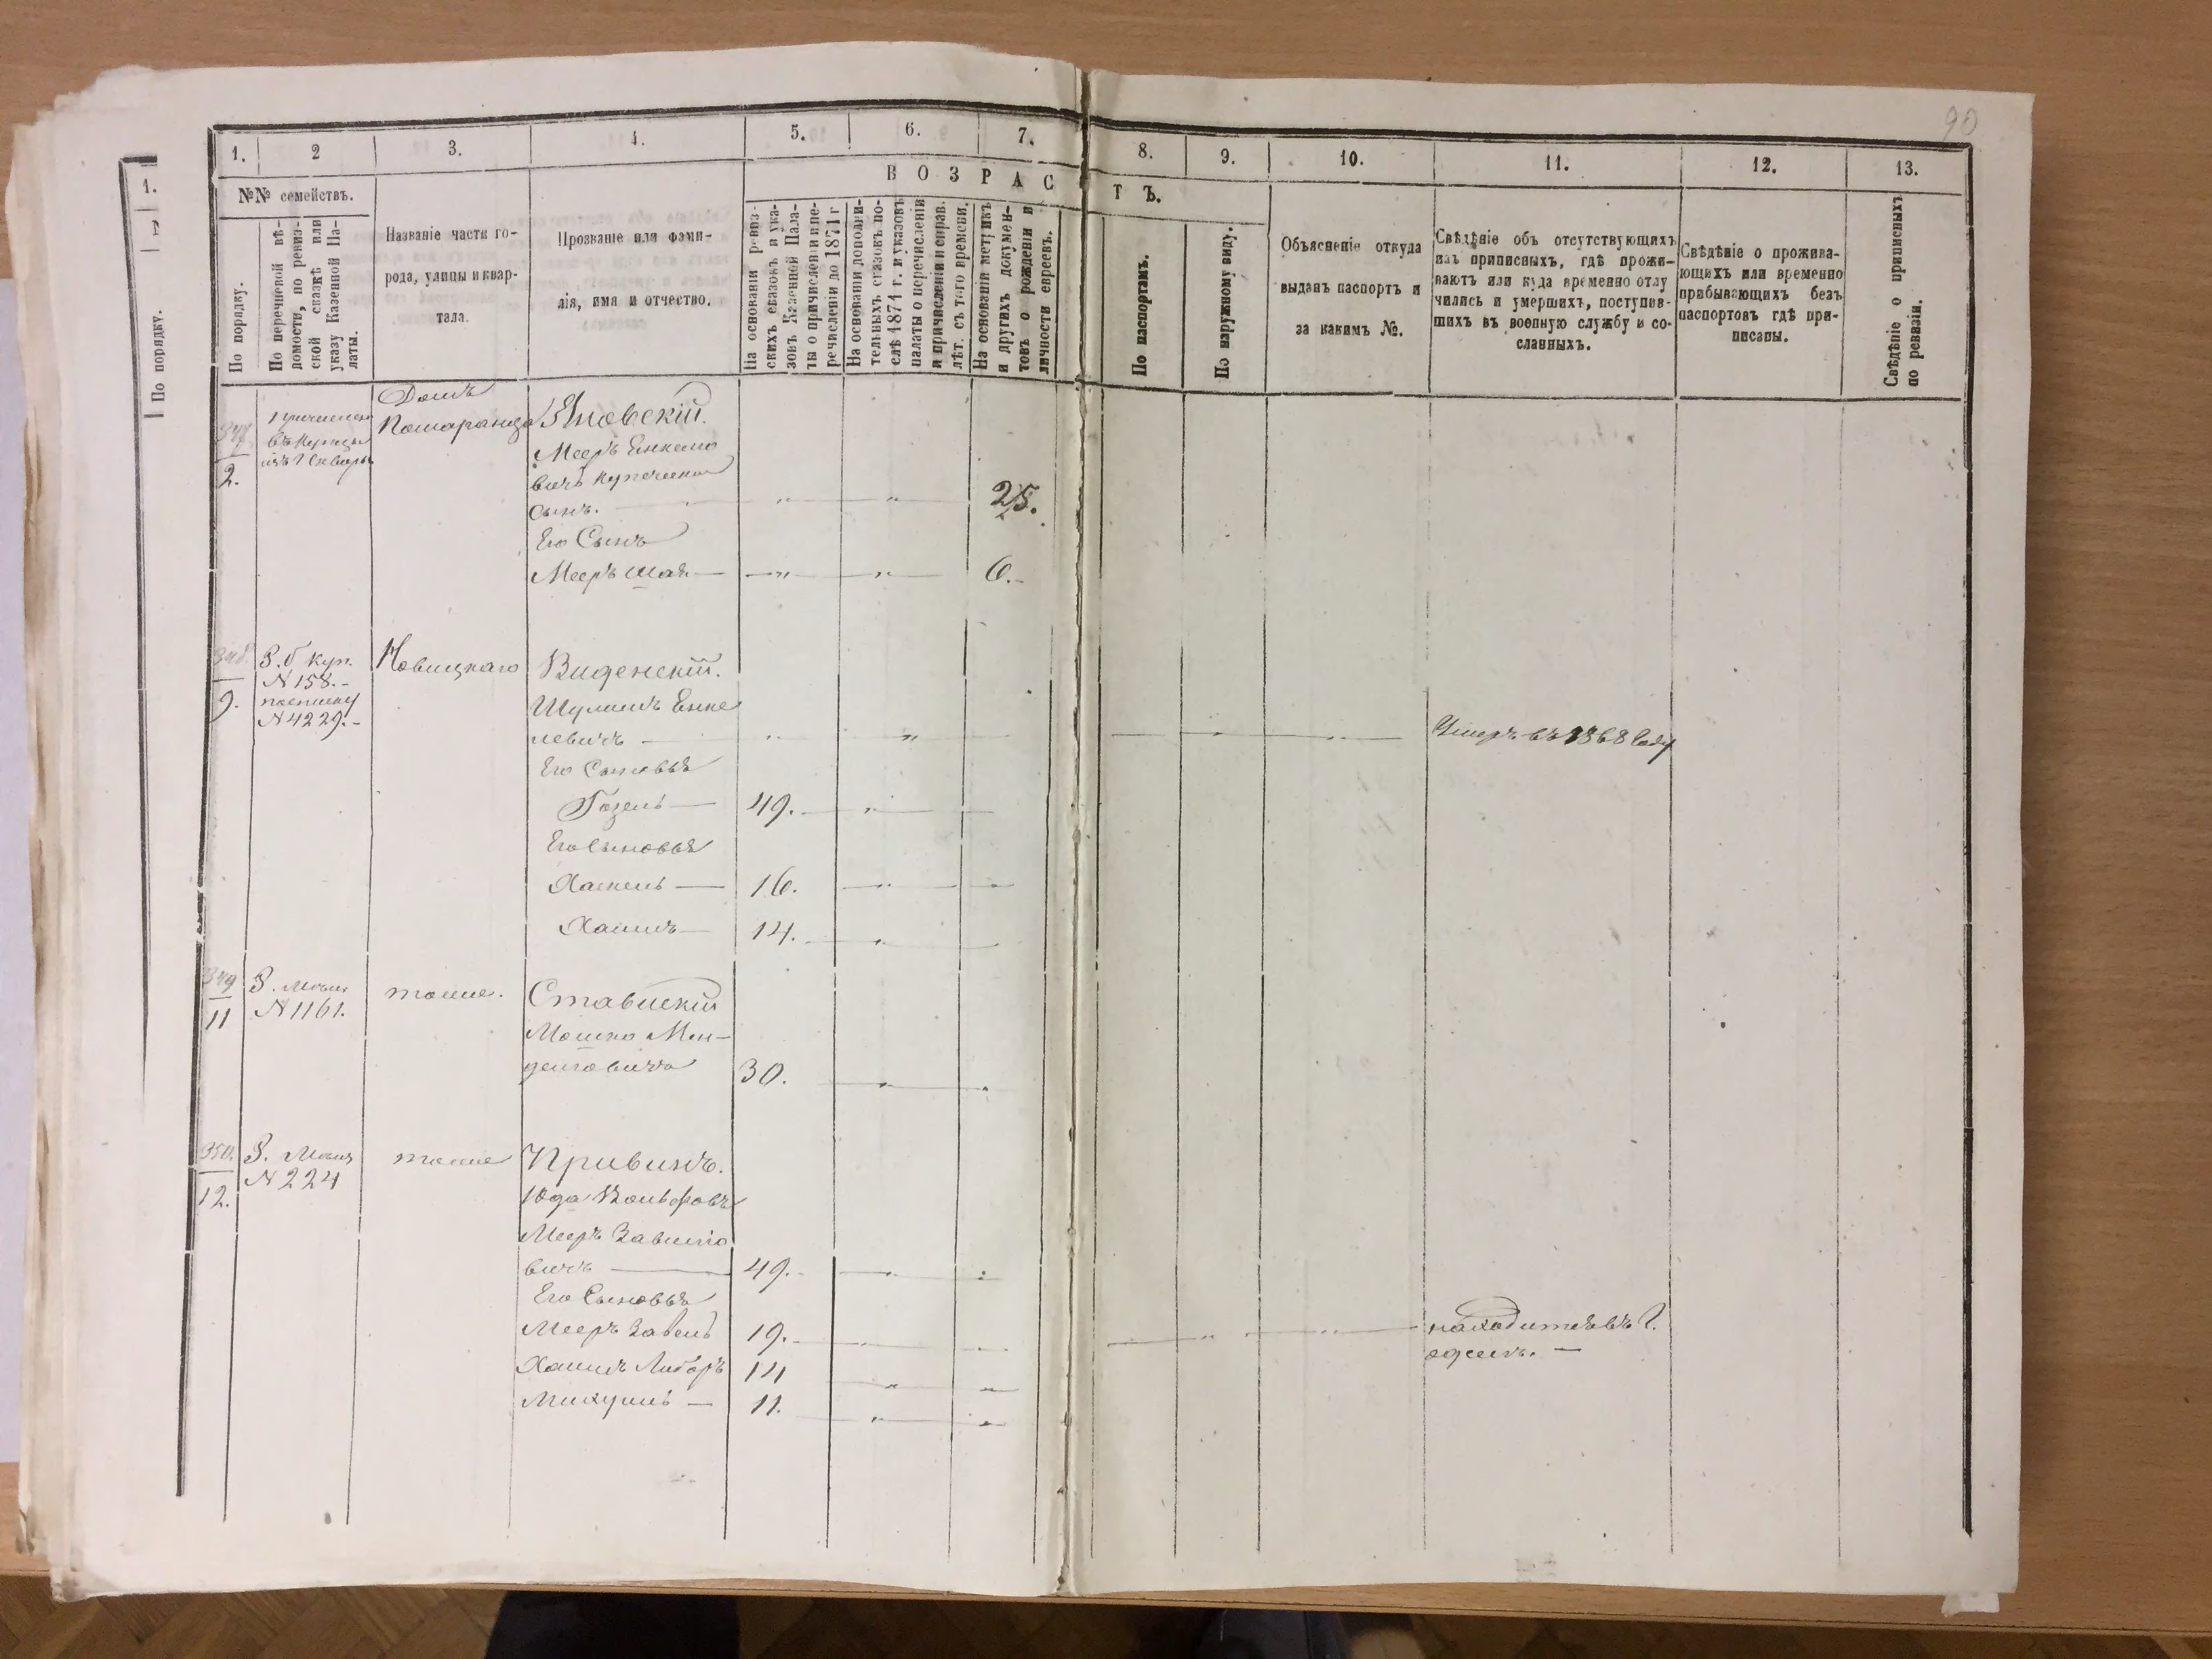 90
1.
По порядку.
1. 2 3. 4. 5. 6. 7. 8. 9. 10. 11. 12. 13.
№№ семействъ.
ВОЗРАСТЪ.
По порядку.
По перечневой вѣ-
домости, по ревиз-
ской сказкѣ или
указу Казенной Па-
латы.
Названіе части го-
рода, улицы и квар-
тала.
Прозваніе или фами-
лія, имя и отчество.
На основаніи ревиз-
скихъ сказокъ и ука-
зовъ Казенной Пала-
ты о причисленіи и пе-
речисленіи до 1871 г
На основаніи дополни-
тельныхъ сказокъ по-
слѣ 1871 г. и указовъ
палаты о перечисленіи
и причисленіи и справ.
лѣт. съ того времени.
На основаніи метрикъ
и другихъ докумен-
товъ о рожденіи и
личности евреевъ.
По паспортамъ.
По наружному виду.
Объясненіе откуда
выданъ паспортъ и
за какимъ №.
Свѣдѣніе объ отсутствующихъ
изъ приписныхъ, гдѣ прожи-
ваютъ или куда временно отлу
чились и умершихъ, поступив-
шихъ въ военную службу и со-
сланныхъ.
Свѣдѣніе о прожива-
ющихъ или временно
прибывающихъ безъ
паспортовъ гдѣ при-
писаны.
Свѣдѣніе о приписныхъ
по ревизіи.
347
2.
Домъ
Помаранца
Яновскій.
Мееръ Енкело
вичъ купеческій
сынъ. — " — " — 25.
Его Сынъ
Мееръ Шая — " — " — 6.
348
9.
Р. б куп.
N 158.
N 4229.
Новицкаго
Виденскій.
Шулимъ Енке
левичъ — " — " — Умеръ въ 1868 году
Его Сыновья
Гозель — 49. — "
Его Сыновья
Хаскель — 16. — " — "
Хаимъ — 14. — " — "
349
11
Р. мѣщ
N 1161.
тоже.
Ставискій
Мошко Мен-
делговичъ 30. — " — "
350.
12.
Р. мѣщ
N 224
тоже
Кривинъ.
Юда Вольфовъ
Мееръ Завелю
вичъ — 49. — " — "
Его Сыновья
Мееръ Завель 19. — " — " — находится въ г.
одессѣ. —
Хаимъ Либоръ 14 — " — "
Михуиль — 11. — " — "